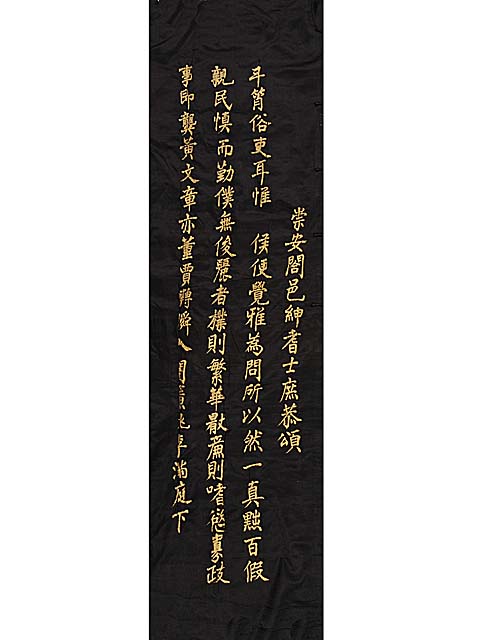 崇安閤邑紳耆士庶恭頌
斗筲俗吏耳惟 侯便覺雅為問所以然一真黜百假
親民慎而勤僕無俊麗者樸則繁華廉則嗜慾寡政
事即龔黃文章亦董賈轉瞬人間桃李滿庭下